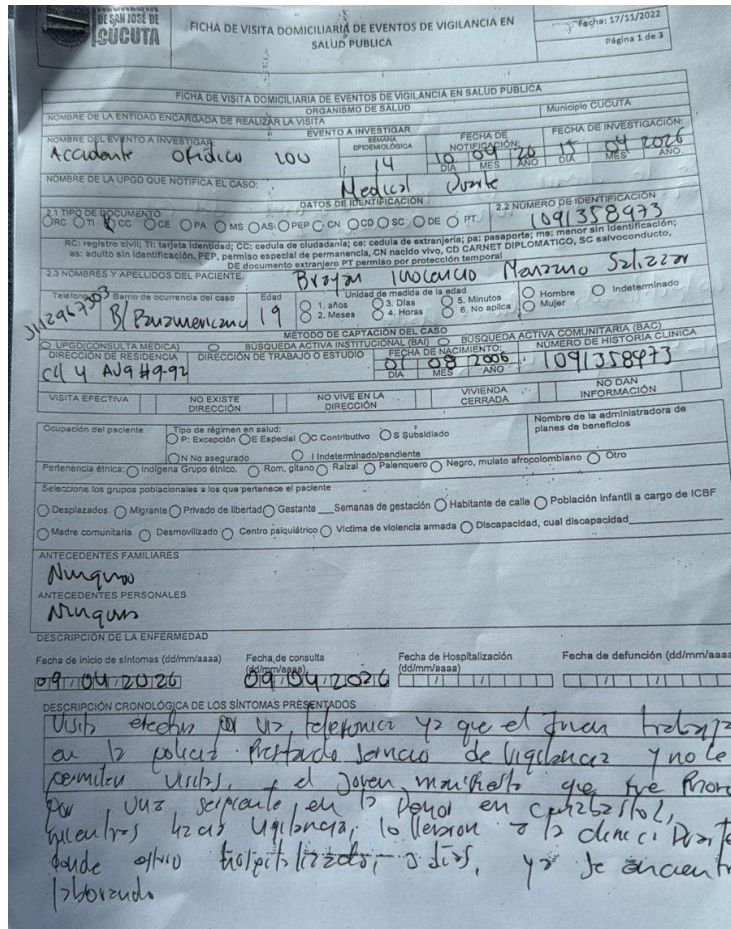 DE SAN JOSÉ DE
CÚCUTA
FICHA DE VISITA DOMICILIARIA DE EVENTOS DE VIGILANCIA EN
SALUD PUBLICA
Fecha: 17/11/2022
Página 1 de 3
FICHA DE VISITA DOMICILIARIA DE EVENTOS DE VIGILANCIA EN SALUD PUBLICA
ORGANISMO DE SALUD
NOMBRE DE LA ENTIDAD ENCARGADA DE REALIZAR LA VISITA
Municipio CUCUTA
EVENTO A INVESTIGAR
NOMBRE DEL EVENTO A INVESTIGAR
SEMANA EPIDEMIOLÓGICA
FECHA DE NOTIFICACIÓN:
FECHA DE INVESTIGACIÓN:
Accidente Ofidico 100 14 10 20 15 04 2026
DIA MES AÑO DIA MES AÑO
NOMBRE DE LA UPGD QUE NOTIFICA EL CASO: Medical Duarte
DATOS DE IDENTIFICACIÓN
2.1 TIPO DE DOCUMENTO
2.2 NÚMERO DE IDENTIFICACIÓN
RC TI CC CE PA MS AS PEP CN CD SC DE PT 1091358973
RC: registro civil; TI: tarjeta identidad; CC: cedula de ciudadanía; ce: cedula de extranjería; pa: pasaporte; ms: menor sin identificación;
as: adulto sin identificación, PEP, permiso especial de permanencia, CN nacido vivo, CD CARNET DIPLOMATICO, SC salvoconducto,
DE documento extranjero PT permiso por protección temporal
2.3 NOMBRES Y APELLIDOS DEL PACIENTE Brayan Manzano
Teléfono Barrio de ocurrencia del caso Edad Unidad de medida de la edad
B/ Panamericano 19
1. años 3. Días 5. Minutos Hombre Indeterminado
2. Meses 4. Horas 6. No aplica Mujer
MÉTODO DE CAPTACIÓN DEL CASO
UPGD(CONSULTA MÉDICA) BUSQUEDA ACTIVA INSTITUCIONAL (BAI) BUSQUEDA ACTIVA COMUNITARIA (BAC)
DIRECCIÓN DE RESIDENCIA DIRECCIÓN DE TRABAJO O ESTUDIO FECHA DE NACIMIENTO: NÚMERO DE HISTORIA CLINICA
#9-92 01 08 2006 1091358973
DIA MES AÑO
VISITA EFECTIVA
NO EXISTE DIRECCIÓN
NO VIVE EN LA DIRECCIÓN
VIVIENDA CERRADA
NO DAN INFORMACIÓN
Ocupación del paciente
Tipo de régimen en salud:
Nombre de la administradora de planes de beneficios
P: Excepción E Especial C Contributivo S Subsidiado
N No asegurado I Indeterminado/pendiente
Pertenencia étnica: Indígena Grupo étnico. Rom, gitano Raizal Palenquero Negro, mulato afropolombiano Otro
Seleccione los grupos poblacionales a los que pertenece el paciente
Desplazados Migrante Privado de libertad Gestante ___Semanas de gestación Habitante de calle Población infantil a cargo de ICBF
Madre comunitaria Desmovilizado Centro psiquiátrico Victima de violencia armada Discapacidad, cual discapacidad
ANTECEDENTES FAMILIARES
ANTECEDENTES PERSONALES
DESCRIPCIÓN DE LA ENFERMEDAD
Fecha de inicio de síntomas (dd/mm/aaaa) Fecha de consulta (dd/mm/aaaa) Fecha de Hospitalización (dd/mm/aaaa) Fecha de defunción (dd/mm/aaaa)
09/04/2026 09/04/2026
DESCRIPCIÓN CRONOLÓGICA DE LOS SÍNTOMAS PRESENTADOS
Visita por via telefonica ya que el Joven trabaja
en la policia Prestando Servicio de Vigilancia y no le
permiten visitas, el Joven manifiesta que fue
por una serpiente en
mientras hacia vigilancia, lo llevaron a la
donde estuvo dias, ya se encuentra
laborando